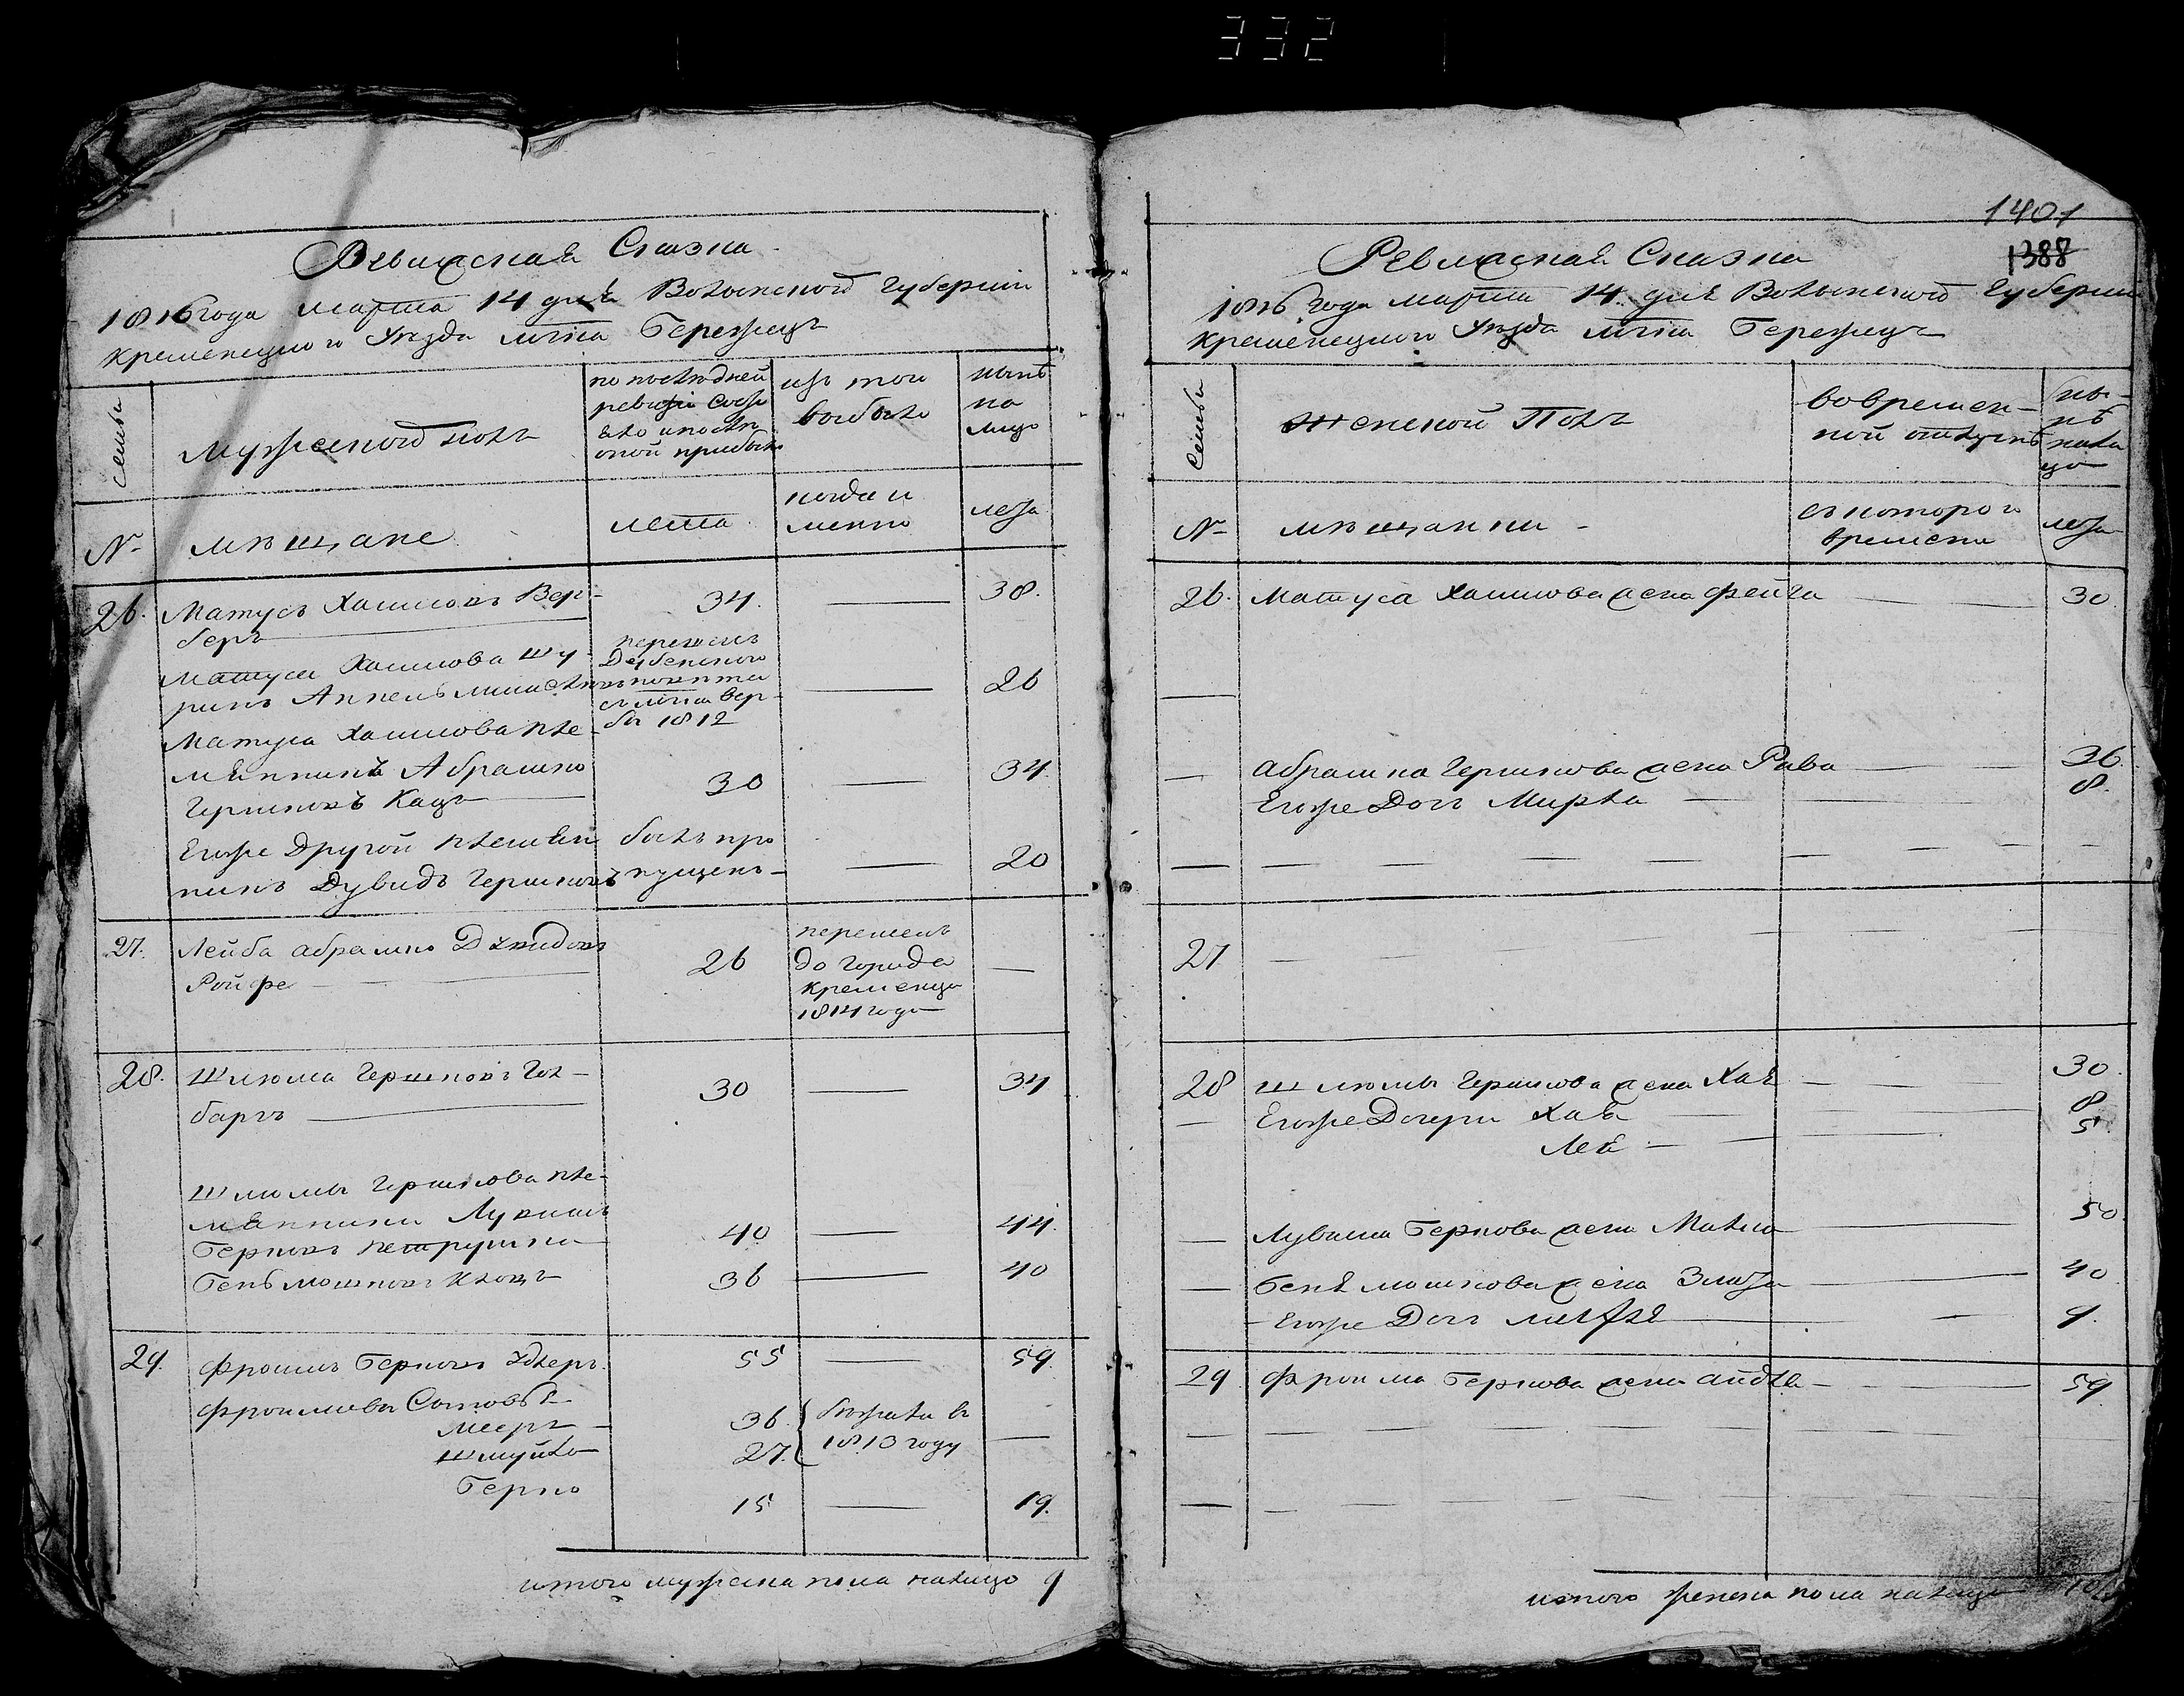 332
Ревизская Сказка
1816 года марта 14 дня Волынской Губернии
Кременецкого Уезда мѣтка Бережец
семья
Мужеской пол
по последней
ревизии состо
яло и после
оной прибыло
из того
выбыло
нынѣ
на
лицо
№
мѣщане
лета
когда и
менно
лета
26.
Матусъ Хаимовъ Вер-
беръ
34.
38.
Матуса Хаимова шу-
ринъ Аппель
перешелъ
Дубенского
повѣта
съ мѣтка Вер-
бы 1812
26
Матуса Хаимова пле-
мянникъ Абрамко
Гершковъ Кацъ
30
34
Егоже Другой племян
никъ Дувидъ Гершковъ
былъ про
пущенъ
20
27.
Лейба Абрамко Давидовъ
Ройфе
26
перешелъ
до города
Кременца
1814 года
28.
Шлюма Гершковъ Гол-
баргъ
30
34
Шлюмы Гершкова пле-
мянники Лукашъ
Берковъ Петрушка
40
44.
Бень Мошковъ Клоцъ
36
40
29.
Фроимъ Берковъ Удлеръ.
55
59.
Фроимовы Сыновья
Мееръ
36.
Шмуйло
27.
бежали в
1813 году
Берко
15
19.
итого мужеска пола налицо 9
1401
1388
Ревизская Сказка
1816 года марта 14 дня Волынской Губернии
Кременецкого Уезда мѣтка Бережец
семья
Женской Полъ
во времен-
ной отлучкѣ
ны-
нѣ
нали
цо
№
мѣщанки
съ которого
времени
лета
26.
Матуса Хаимова жена Фейга
30
Абрамка Гершкова жена Рива
36.
Егоже Доч Мирля
8.
27
28
Шлюмы Гершкова жена Хая
30.
Егоже Дочери Хая
8
Лея
5.
Лукаша Беркова жена Малка
50
Беня Мошкова жена Злата
40
Егоже Доч
9.
29
Фроима Беркова жена Айдля
59
итого женска пола налицо 10